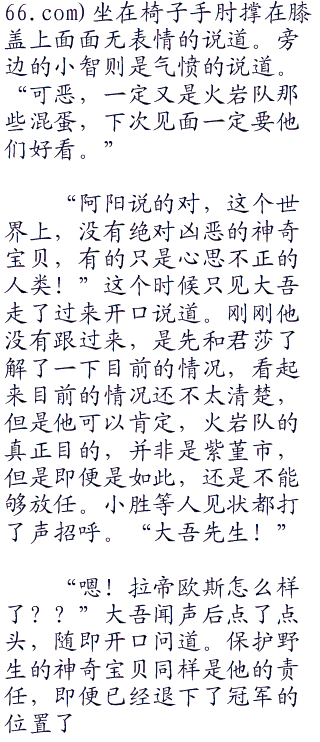 66.com)坐在椅子手肘撑在膝
盖上面面无表情的说道。旁
边的小智则是气愤的说道。
“可恶，一定又是火岩队那
些混蛋，下次见面一定要他
们好看。”
“阿阳说的对，这个世
界上，没有绝对凶恶的神奇
宝贝，有的只是心思不正的
人类！”这个时候只见大吾
走了过来开口说道。刚刚他
没有跟过来，是先和君莎了
解了一下目前的情况，看起
来目前的情况还不太清楚，
但是他可以肯定，火岩队的
真正目的，并非是紫堇市，
但是即便是如此，还是不能
够放任。小胜等人见状都打
了声招呼。“大吾先生！”
“嗯！拉帝欧斯怎么样
了？？”大吾闻声后点了点
头，随即开口问道。保护野
生的神奇宝贝同样是他的责
任，即便已经退下了冠军的
位置了